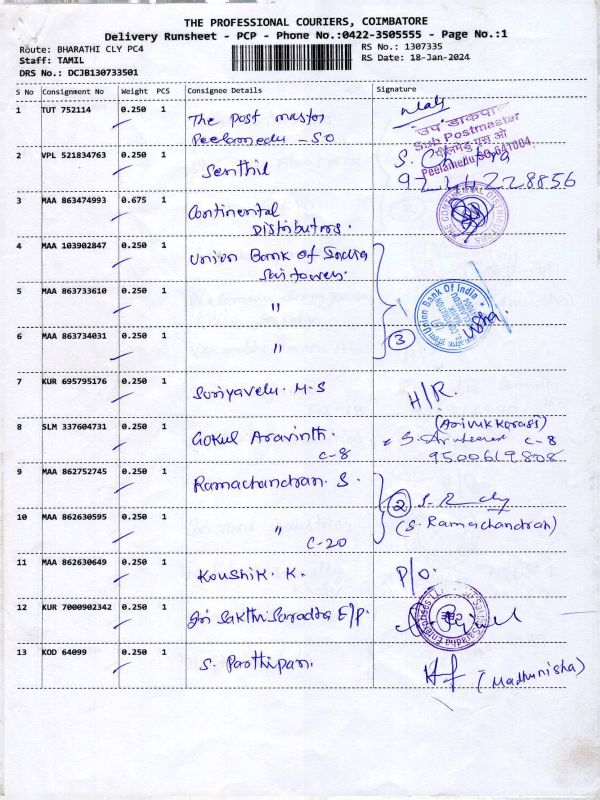 THE PROFESSIONAL COURIERS, COIMBATORE
Delivery Runsheet - PCP - Phone No.:0422-3505555 - Page No.:1
Route: BHARATHI CLY PC4
RS No.: 1307335
Staff: TAMIL
RS Date: 18-Jan-2024
DRS No.: DCJB130733501
S No Consignment No Weight PCS Consignee Details Signature
1 TUT 752114 0.250 1 The post master
Peelamedu - SO
उप डाकपाल
Sub Postmaster
पीलमेडु एस ओ
Peelamedu SO-641004
2 VPL 521834763 0.250 1 Senthil S. Chitra
9244228856
3 MAA 863474993 0.675 1 Continental
Distributors.
THE CONTINENTAL DISTRIBUTORS
4 MAA 103902847 0.250 1 Union Bank of India
Sai Towers.
5 MAA 863733610 0.250 1 "
Union Bank Of India
Usha.
6 MAA 863734031 0.250 1 "
3
7 KUR 695795176 0.250 1 Suriyavelu. M.S H/R.
8 SLM 337604731 0.250 1 Gokul Aravinth.
C-8
(Arivukkarasi)
C-8
9500619808
9 MAA 862752745 0.250 1 Ramachandran. S.
2
10 MAA 862630595 0.250 1 "
C-20
(S. Ramachandran)
11 MAA 862630649 0.250 1 Koushik. K. P/O.
12 KUR 7000902342 0.250 1 Sri Sakthi Saradha E/P.
13 KOD 64099 0.250 1 S. Parthipan. (Madhunisha)